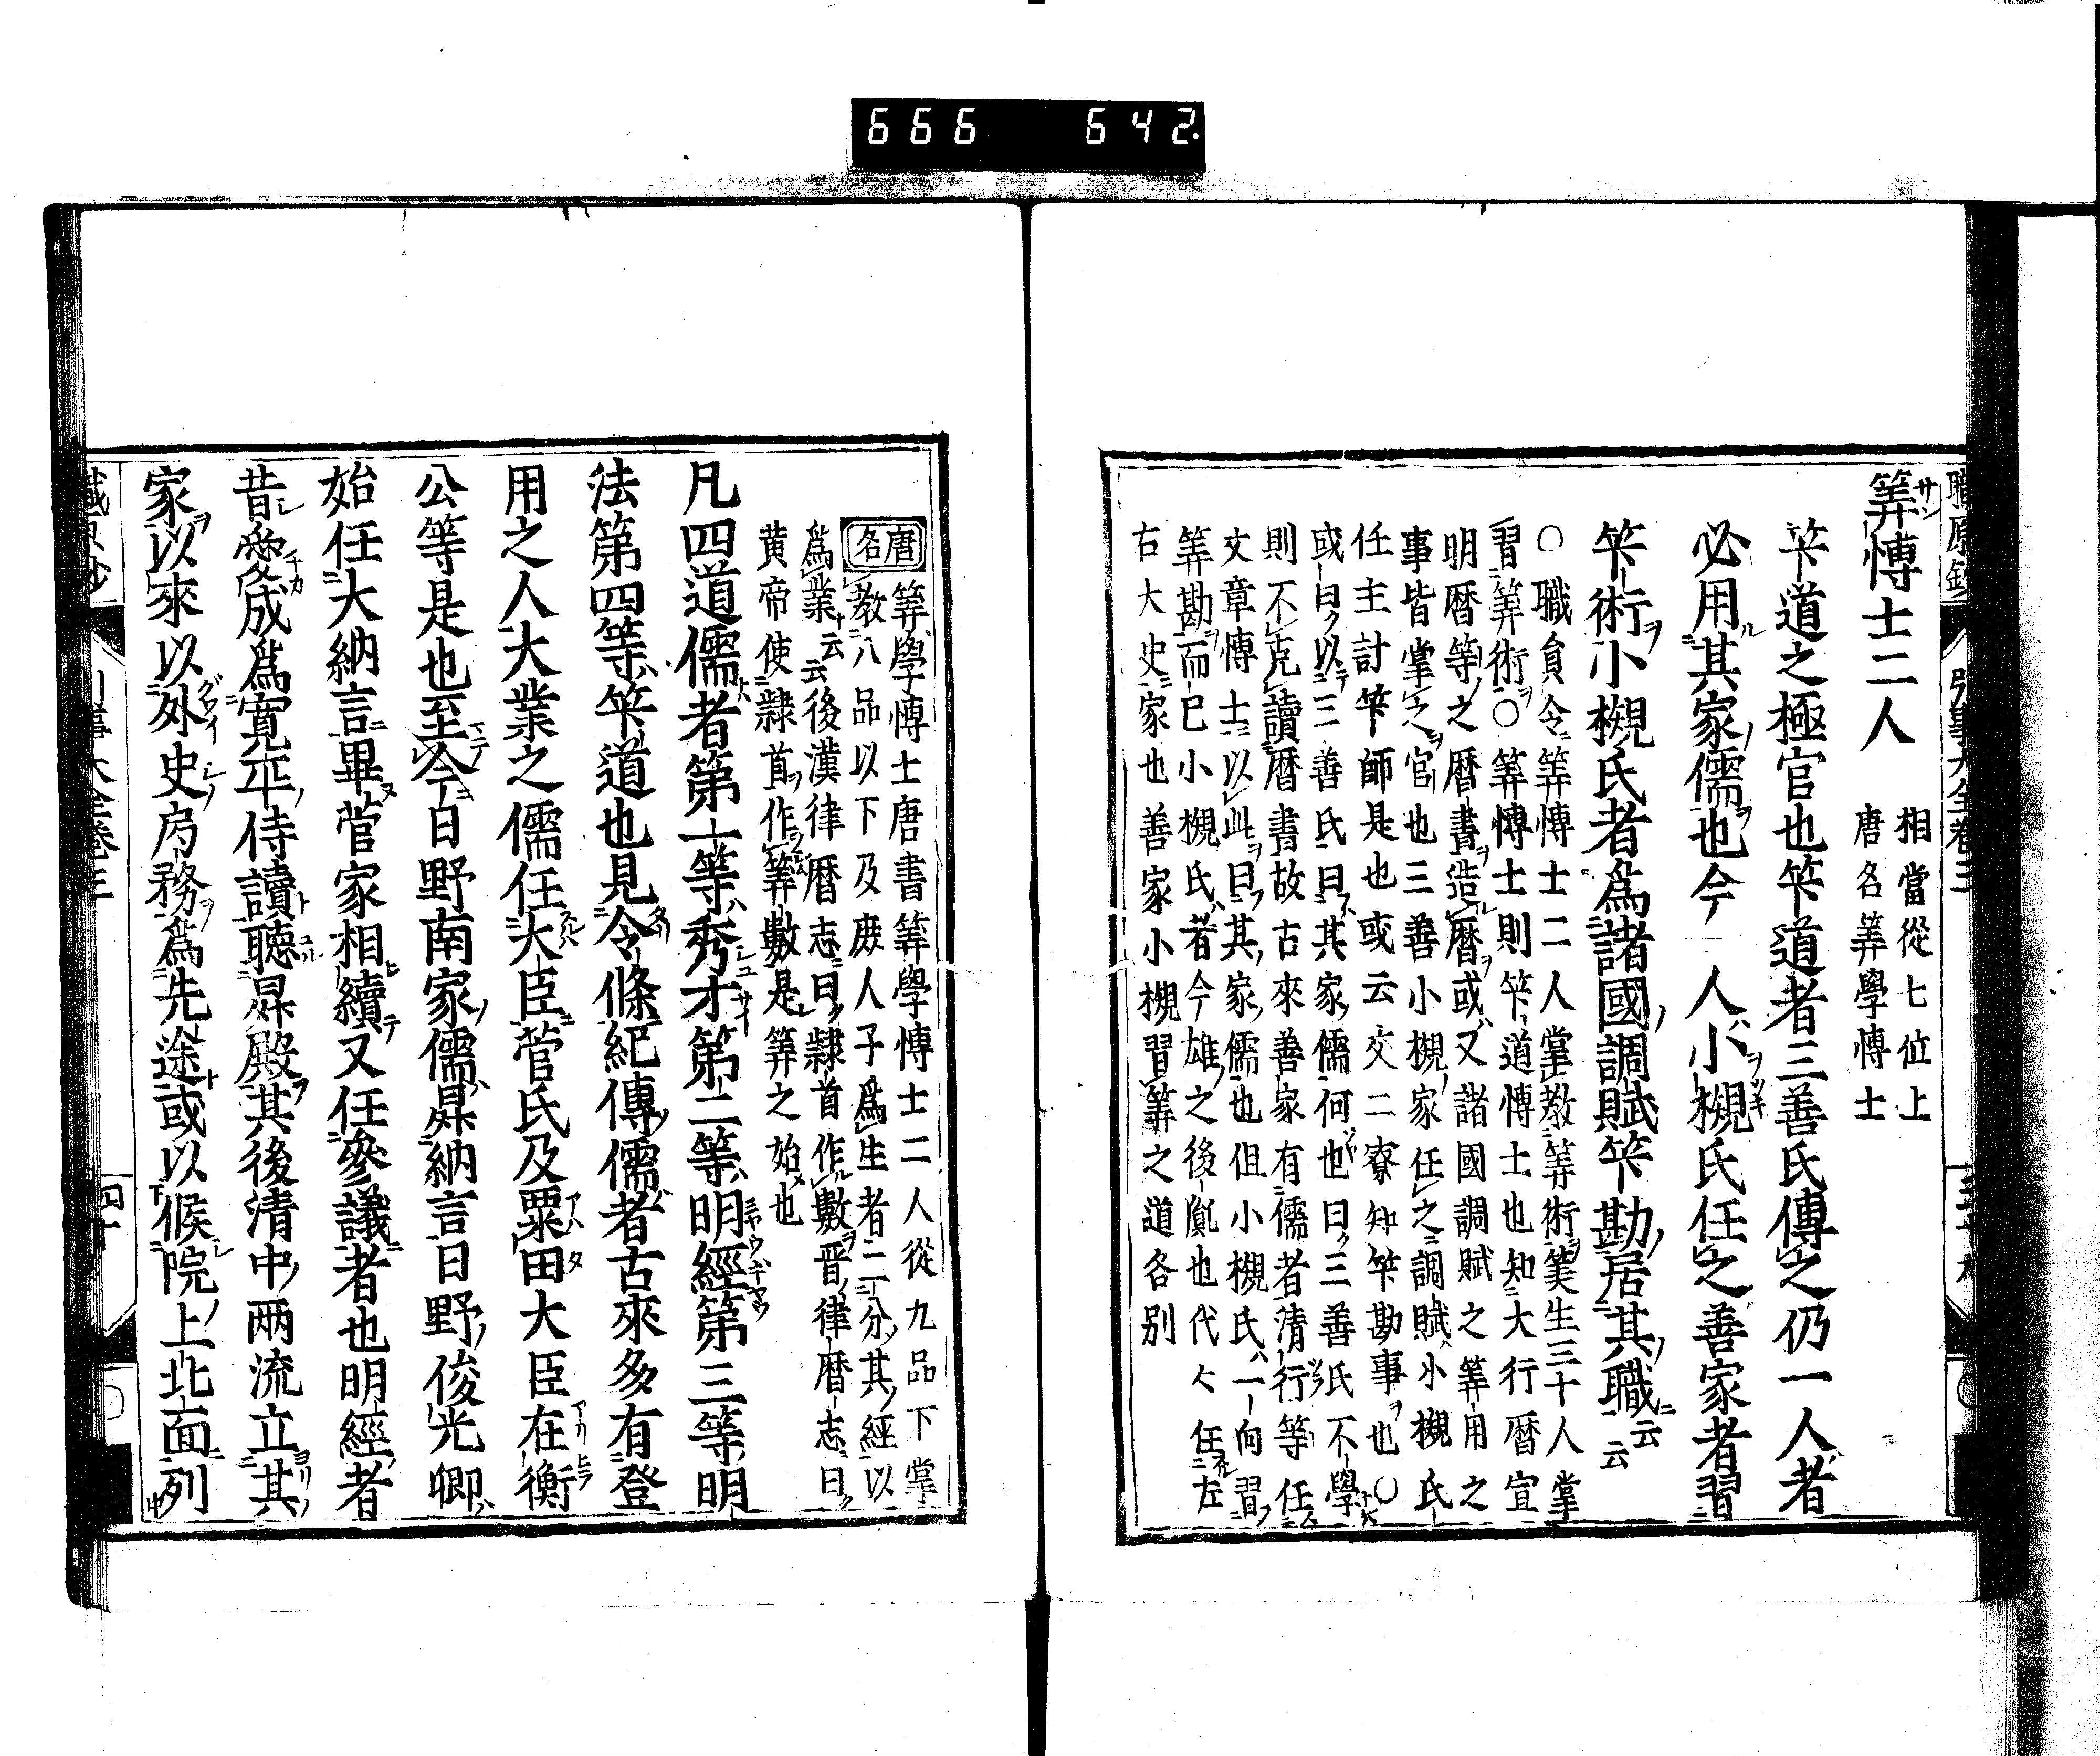 666 642
筭博士二人
相當從七位上
唐名筭學博士
笇道之極官也笇道者三善氏傳之仍一人者
必用其家儒也今一人小槻氏任之善家者習
笇術小槻氏者為諸國調賦笇勘居其職云云
○職員令筭博士二人掌教筭術筭生三十人掌
習筭術○筭博士則笇道博士也知大行暦宜
明暦等之暦書造暦或又諸國調賦之筭用之
事皆掌之官也三善小槻家任之調賦小槻氏
任主計笇師是也或云交二寮知笇勘事也○
或曰以三善氏曰其家儒何也曰三善氏不學
則不克讀暦書故古來善家有儒者清行等任
文章博士以此曰其家儒也但小槻氏一向習
筭勘而已小槻氏者今雄之後胤也代々任左
右大史家也善家小槻習筭之道各別
唐名
筭學博士唐書筭學博士二人從九品下掌
教八品以下及庶人子為生者二分其經以
為業云云後漢律暦志曰隸首作數晋律暦志曰
黄帝使隸首作筭數是筭之始也
凡四道儒者第一等秀才第二等明經第三等明
法第四等笇道也見令條紀傳儒者古來多有登
用之人大業之儒任大臣菅氏及粟田大臣在衡
公等是也至今日野南家儒昇納言日野俊光卿
始任大納言畢菅家相續又任參議者也明經者
昔愛成為寛平侍讀聽昇殿其後清中兩流立其
家以來以外史局務為先途或以候院上北面列